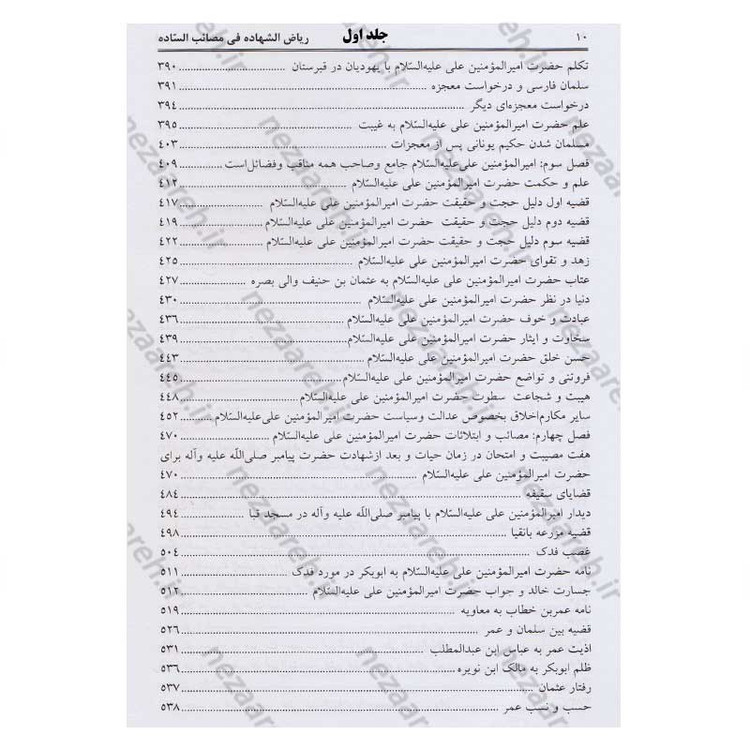 ۱۰ جلد اول ریاض الشهاده فی مصائب السّاده
تکلم حضرت امیرالمؤمنین علی علیه‌السّلام با یهودیان در قبرستان ۳۹۰
سلمان فارسی و درخواست معجزه ۳۹۱
درخواست معجزه‌ای دیگر ۳۹٤
علم حضرت امیرالمؤمنین علی علیه‌السّلام به غیبت ۳۹٥
مسلمان شدن حکیم یونانی پس از معجزات ٤۰۳
فصل سوم: امیرالمؤمنین علی علیه‌السّلام جامع وصاحب همه مناقب وفضائل است ٤۰۹
علم و حکمت حضرت امیرالمؤمنین علی علیه‌السّلام ٤۱۲
قضیه اول دلیل حجت و حقیقت حضرت امیرالمؤمنین علی علیه‌السّلام ٤۱۷
قضیه دوم دلیل حجت و حقیقت حضرت امیرالمؤمنین علی علیه‌السّلام ٤۱۹
قضیه سوم دلیل حجت و حقیقت حضرت امیرالمؤمنین علی علیه‌السّلام ٤۲۲
زهد و تقوای حضرت امیرالمؤمنین علی علیه‌السّلام ٤۲٥
عتاب حضرت امیرالمؤمنین علی علیه‌السّلام به عثمان بن حنیف والی بصره ٤۲۷
دنیا در نظر حضرت امیرالمؤمنین علی علیه‌السّلام ٤۳۰
عبادت و خوف حضرت امیرالمؤمنین علی علیه‌السّلام ٤۳٦
سخاوت و ایثار حضرت امیرالمؤمنین علی علیه‌السّلام ٤۳۹
حسن خلق حضرت امیرالمؤمنین علی علیه‌السّلام ٤٤۳
فروتنی و تواضع حضرت امیرالمؤمنین علی علیه‌السّلام ٤٤٥
هیبت و شجاعت سطوت حضرت امیرالمؤمنین علی علیه‌السّلام ٤٤۸
سایر مکارم اخلاق بخصوص عدالت وسیاست حضرت امیرالمؤمنین علی علیه‌السّلام ٤٥۲
فصل چهارم: مصائب و ابتلائات حضرت امیرالمؤمنین علی علیه‌السّلام ٤۷۰
هفت مصیبت و امتحان در زمان حیات و بعد ازشهادت حضرت پیامبر صلی‌اللّه علیه وآله برای
حضرت امیرالمؤمنین علی علیه‌السّلام ٤۷۰
قضایای سقیفه ٤۸٤
دیدار امیرالمؤمنین علی علیه‌السّلام با پیامبر صلی‌اللّه علیه وآله در مسجد قبا ٤۹٤
قضیه مزرعه بانقیا ٤۹۸
غصب فدک ٥۰٤
نامه حضرت امیرالمؤمنین علی علیه‌السّلام به ابوبکر در مورد فدک ٥۱۱
جسارت خالد و جواب حضرت امیرالمؤمنین علی علیه‌السّلام ٥۱۲
نامه عمربن خطاب به معاویه ٥۱۹
قضیه بین سلمان و عمر ٥۲٦
اذیت عمر به عباس ابن عبدالمطلب ٥۳۱
ظلم ابوبکر به مالک ابن نویره ٥۳٦
رفتار عثمان ٥۳۷
حسب و نسب عمر ٥۳۸
nezaareh.ir